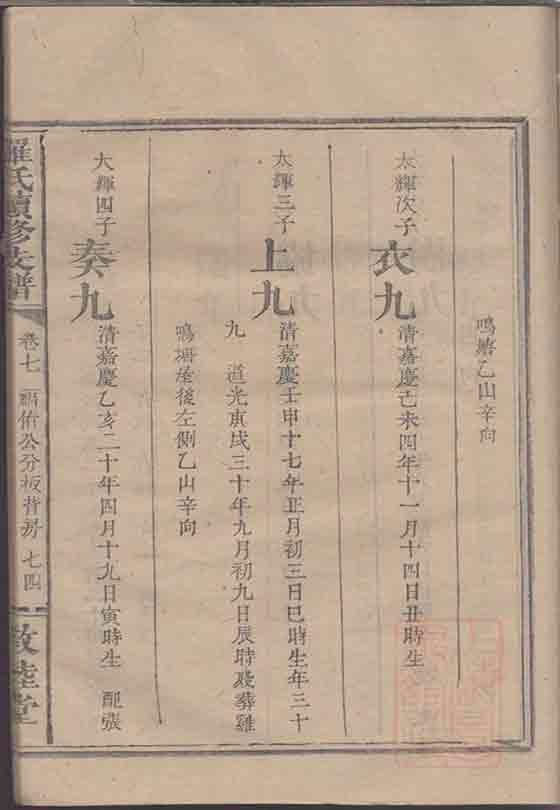 鳴塘乙山辛向
大輝次子
衣九
清嘉慶己未四年十一月十四日丑時生
大輝三子
上九
清嘉慶壬申十七年正月初三日巳時生年三十
九 道光庚戌三十年九月初九日辰時歿葬羅
鳴塘屋後左側乙山辛向
大輝四子
奏九
清嘉慶乙亥二十年四月十九日寅時生 配張
羅氏續修支譜
卷七
佑公分板背房
七四
敦睦堂